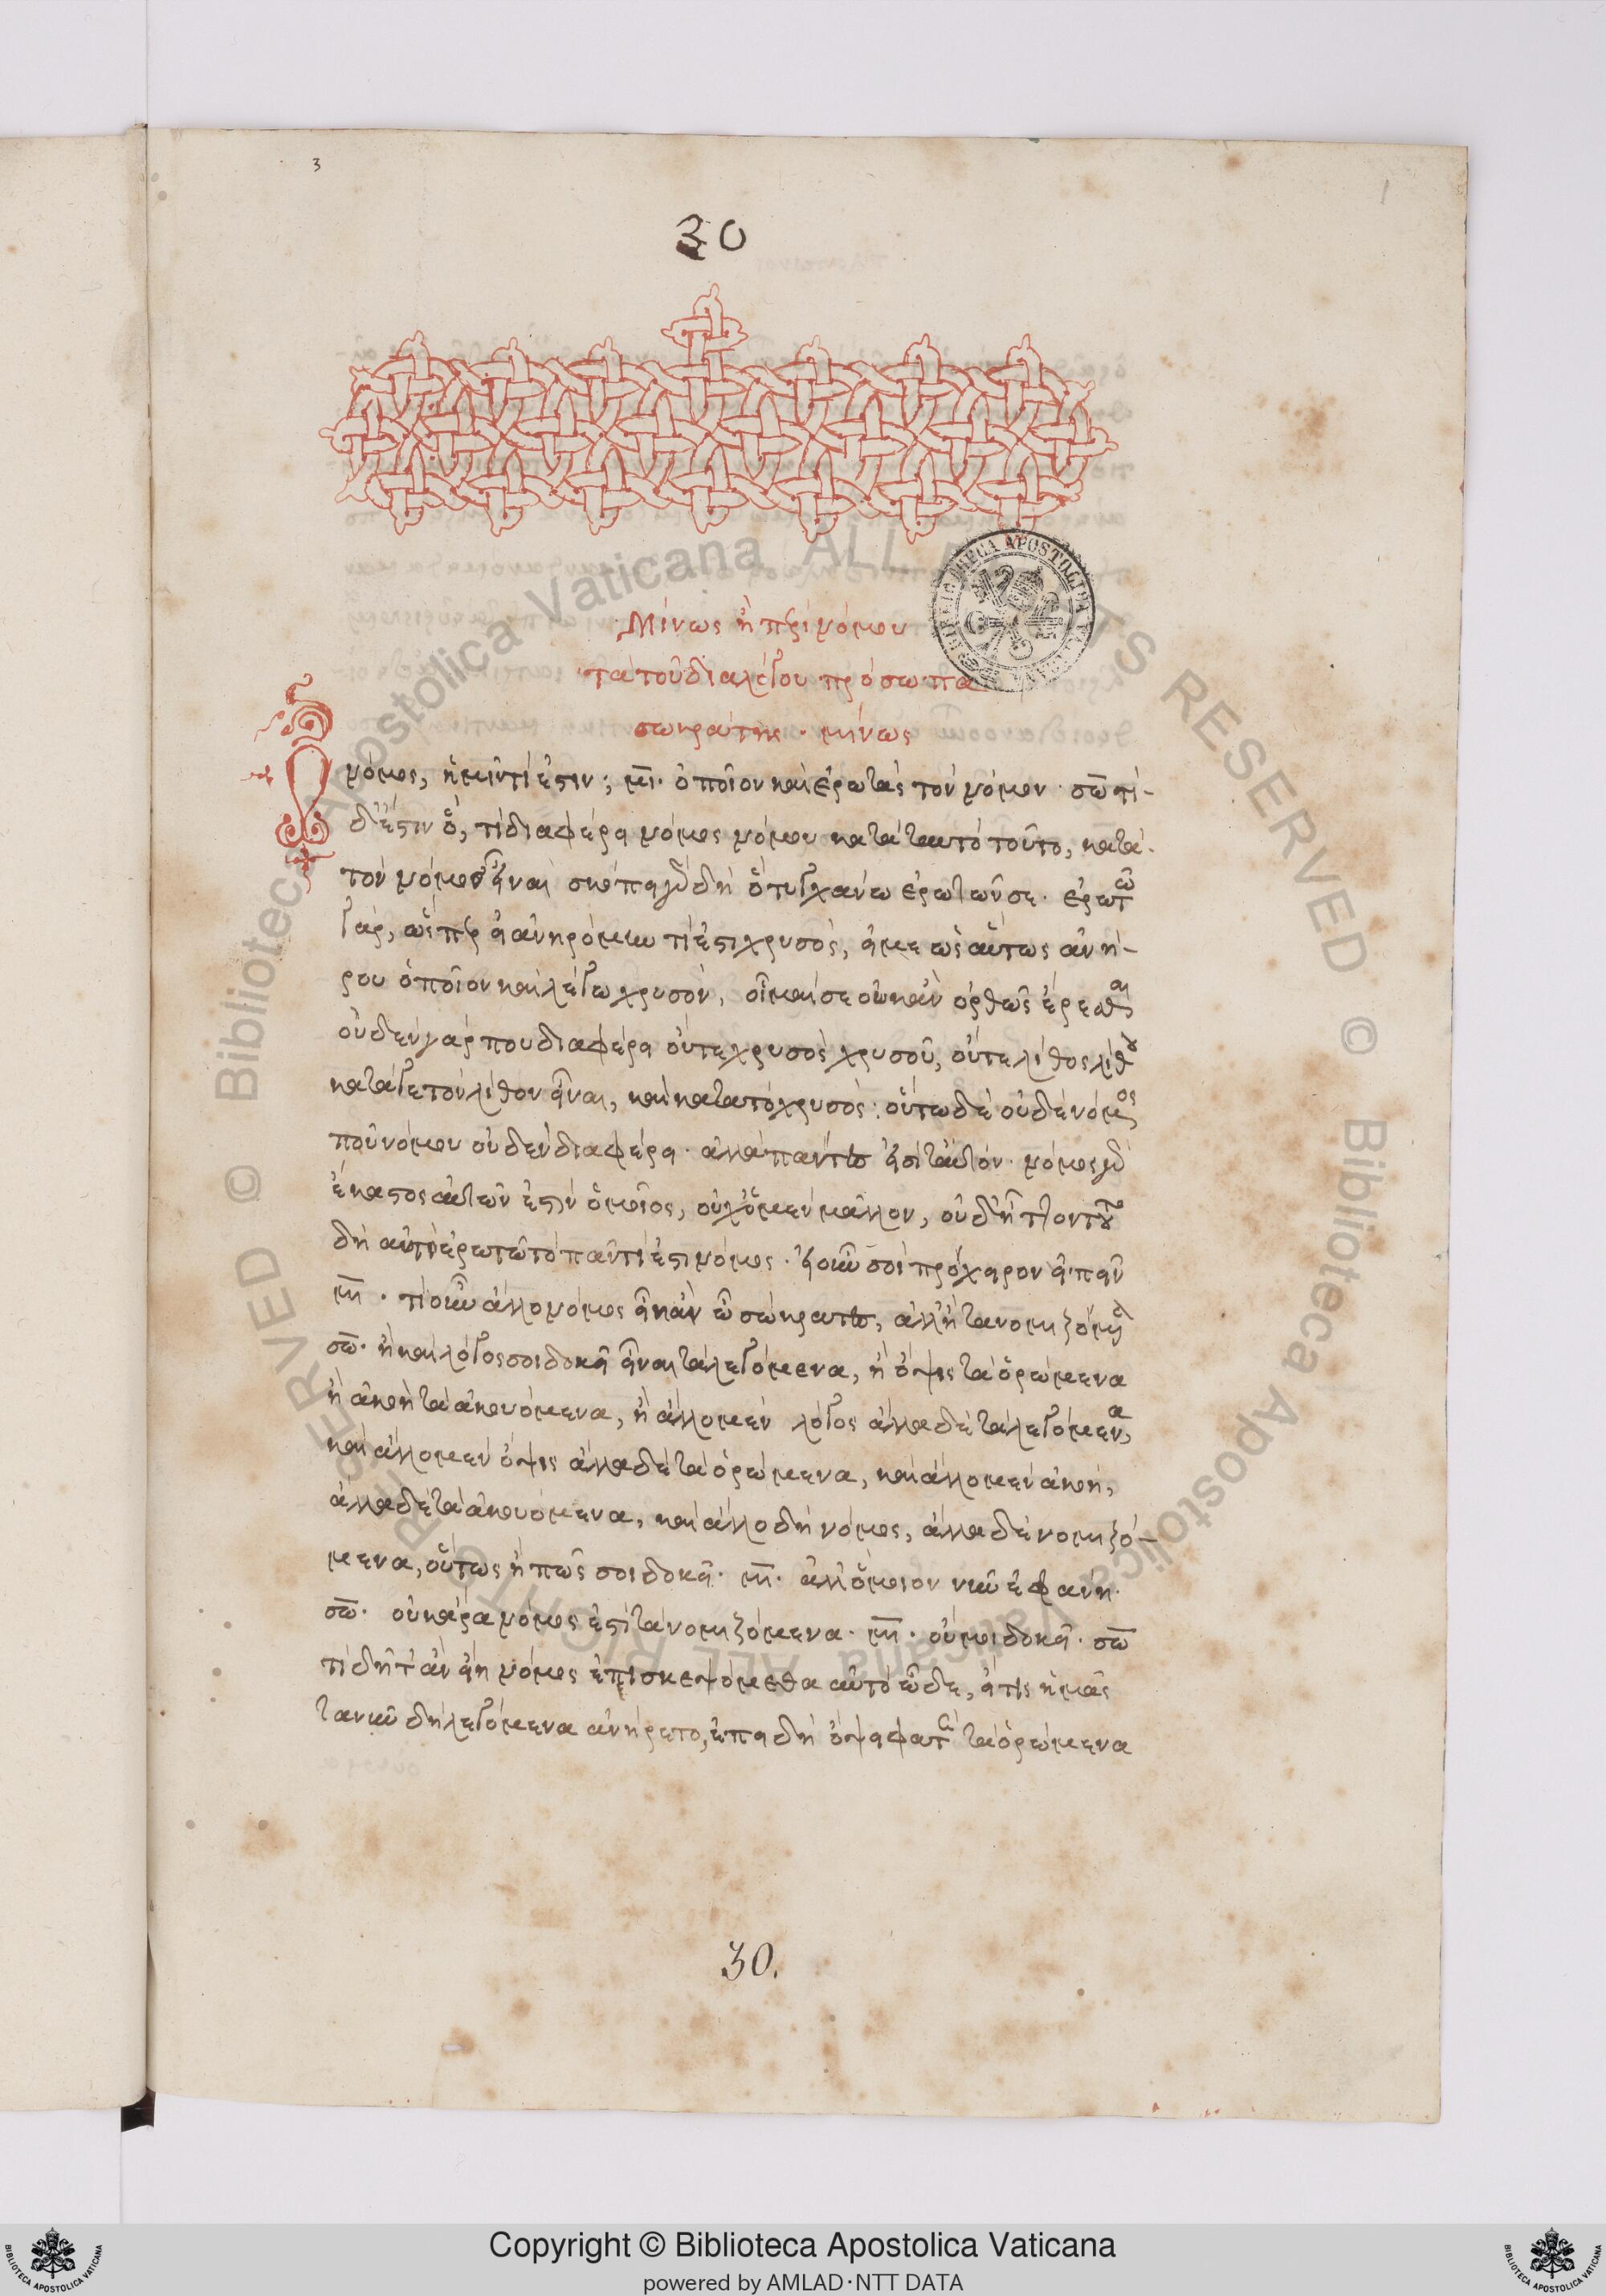 3
1
30
Μίνως ἢ περὶ νόμου
τὰ τοῦ διαλόγου πρόσωπα
σωκράτης · μίνως
Ὁ νόμος, ἡμῖν τί ἐστιν; μι. ὁποῖον καὶ ἐρωτᾷς τὸν νόμον· σω τί
δ' ἔστιν ὅ, τι διαφέρει νόμος νόμου κατὰ ταυτὸ τοῦτο, κατὰ
τὸν νόμος εἶναι σκόπει γὰρ δὴ ὃ τυγχάνω ἐρωτῶν σε· ἐρωτῶ
γάρ, ὥσπερ εἰ ἀνηρόμην τί ἐστι χρυσὸς, εἴ με ὡσαύτως ἀνή-
ρου ὁποῖον καὶ λέγω χρυσόν, οἶμαί σε οὐκ ἂν ὀρθῶς ἐρέσθαι
οὐδὲν γάρ που διαφέρει οὔτε χρυσὸς χρυσοῦ, οὔτε λίθος λίθου
κατά γε τὸ λίθον εἶναι, καὶ κατὰ τὸ χρυσὸς· οὕτω δὲ οὐδὲ νόμος
που νόμου οὐδὲν διαφέρει· ἀλλὰ πάντες εἰσὶ ταὐτόν· νόμος γὰρ
ἕκαστος αὐτῶν ἐστὶν ὁμοίως, οὐχ ὁ μὲν μᾶλλον, ὁ δ' ἧττον τοῦτο
δὴ αὐτὸ ἐρωτῶ τὸ πᾶν τί ἐστι νόμος· εἰ οὖν σοι πρόχειρον εἰπεῖν
μι · τί οὖν ἄλλο νόμος εἴη ἂν ὦ σώκρατες, ἀλλ' ἢ τὰ νομιζόμενα
σω· ἦ καὶ λόγος σοι δοκεῖ εἶναι τὰ λεγόμενα, ἢ ὄψις τὰ ὁρώμενα
ἢ ἀκοὴ τὰ ἀκουόμενα, ἢ ἄλλο μὲν λόγος ἄλλα δὲ τὰ λεγόμενα,
καὶ ἄλλο μὲν ὄψις ἄλλα δὲ τὰ ὁρώμενα, καὶ ἄλλο μὲν ἀκοή,
ἄλλα δὲ τὰ ἀκουόμενα, καὶ ἄλλο δὴ νόμος, ἄλλα δὲ νομιζό-
μενα, οὕτως ἢ πῶς σοι δοκεῖ· μι· ἀλλ' ὅμοιον νῦν ἐφάνη·
σω· οὐκ ἄρα νόμος ἐστὶ τὰ νομιζόμενα· μι · οὔ μοι δοκεῖ· σω
τί δῆτ' ἂν εἴη νόμος ἐπισκεψόμεθα αὐτὸ ὧδε, εἴ τις ἡμᾶς
τὰ νῦν δὴ λεγόμενα ἀνήρετο, ἐπειδὴ ὄψει φατὲ τὰ ὁρώμενα
30.
Copyright © Biblioteca Apostolica Vaticana
powered by AMLAD·NTT DATA